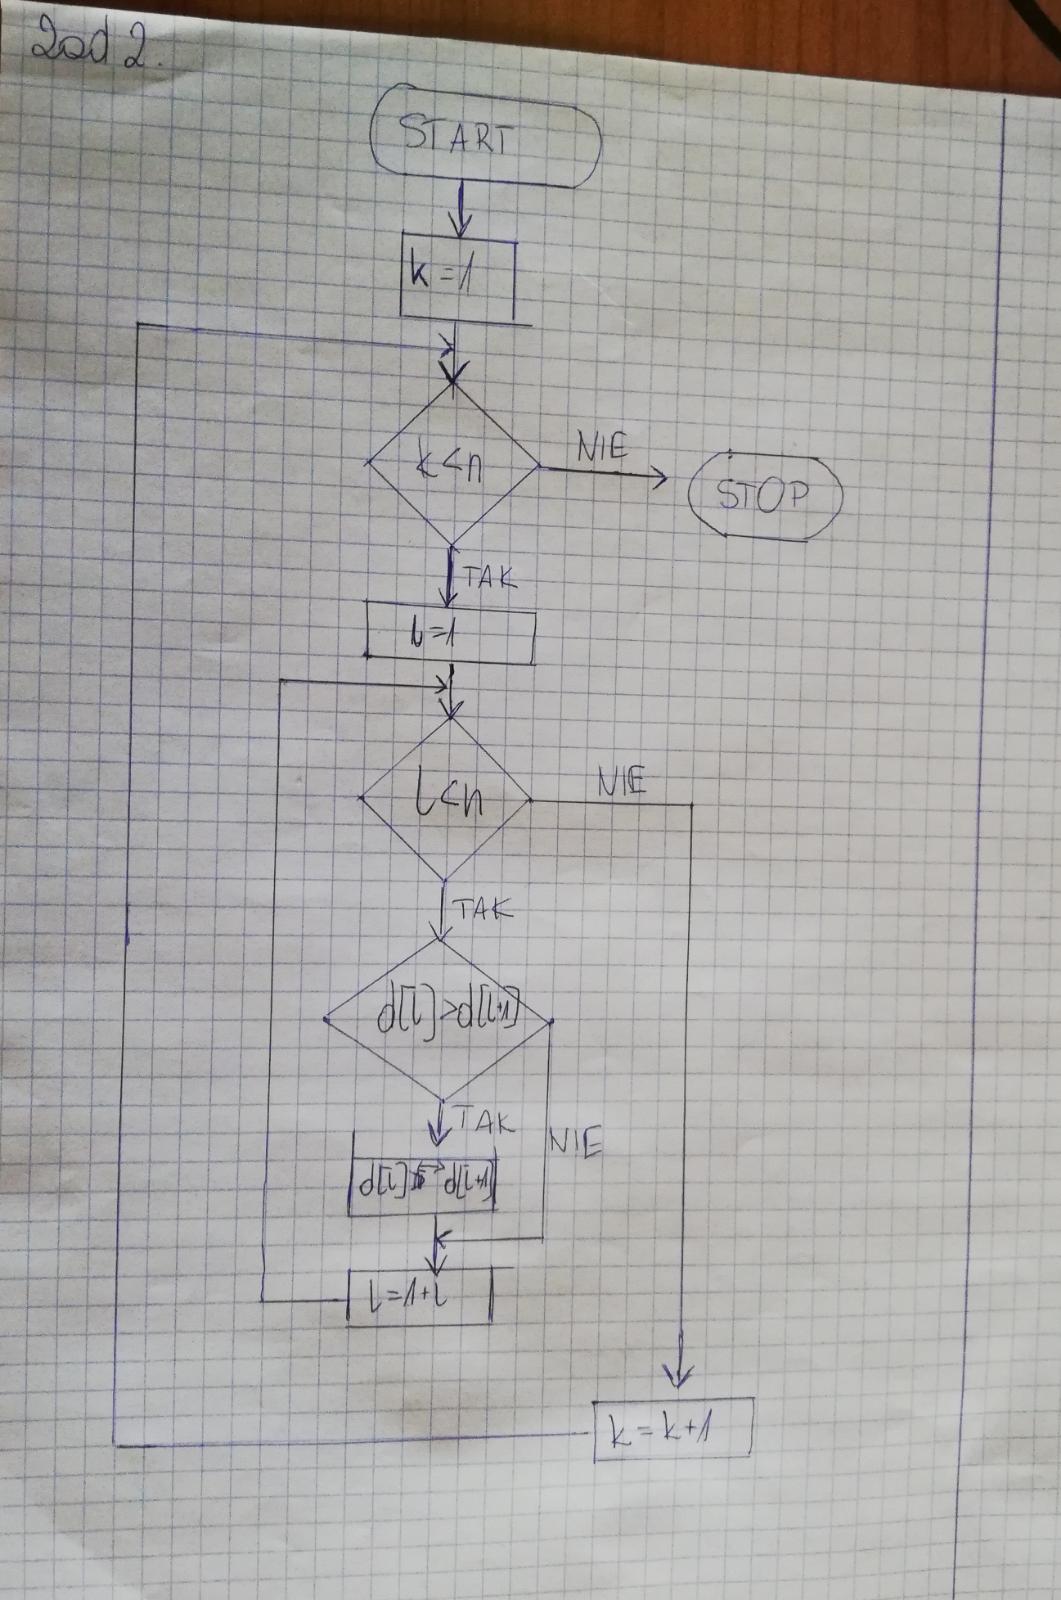 Zad 2.
START
k=1
k<n
NIE
STOP
TAK
l=1
l<n
NIE
TAK
d[l]>d[l+1]
TAK
NIE
d[l]↔d[l+1]
l=1+l
k=k+1